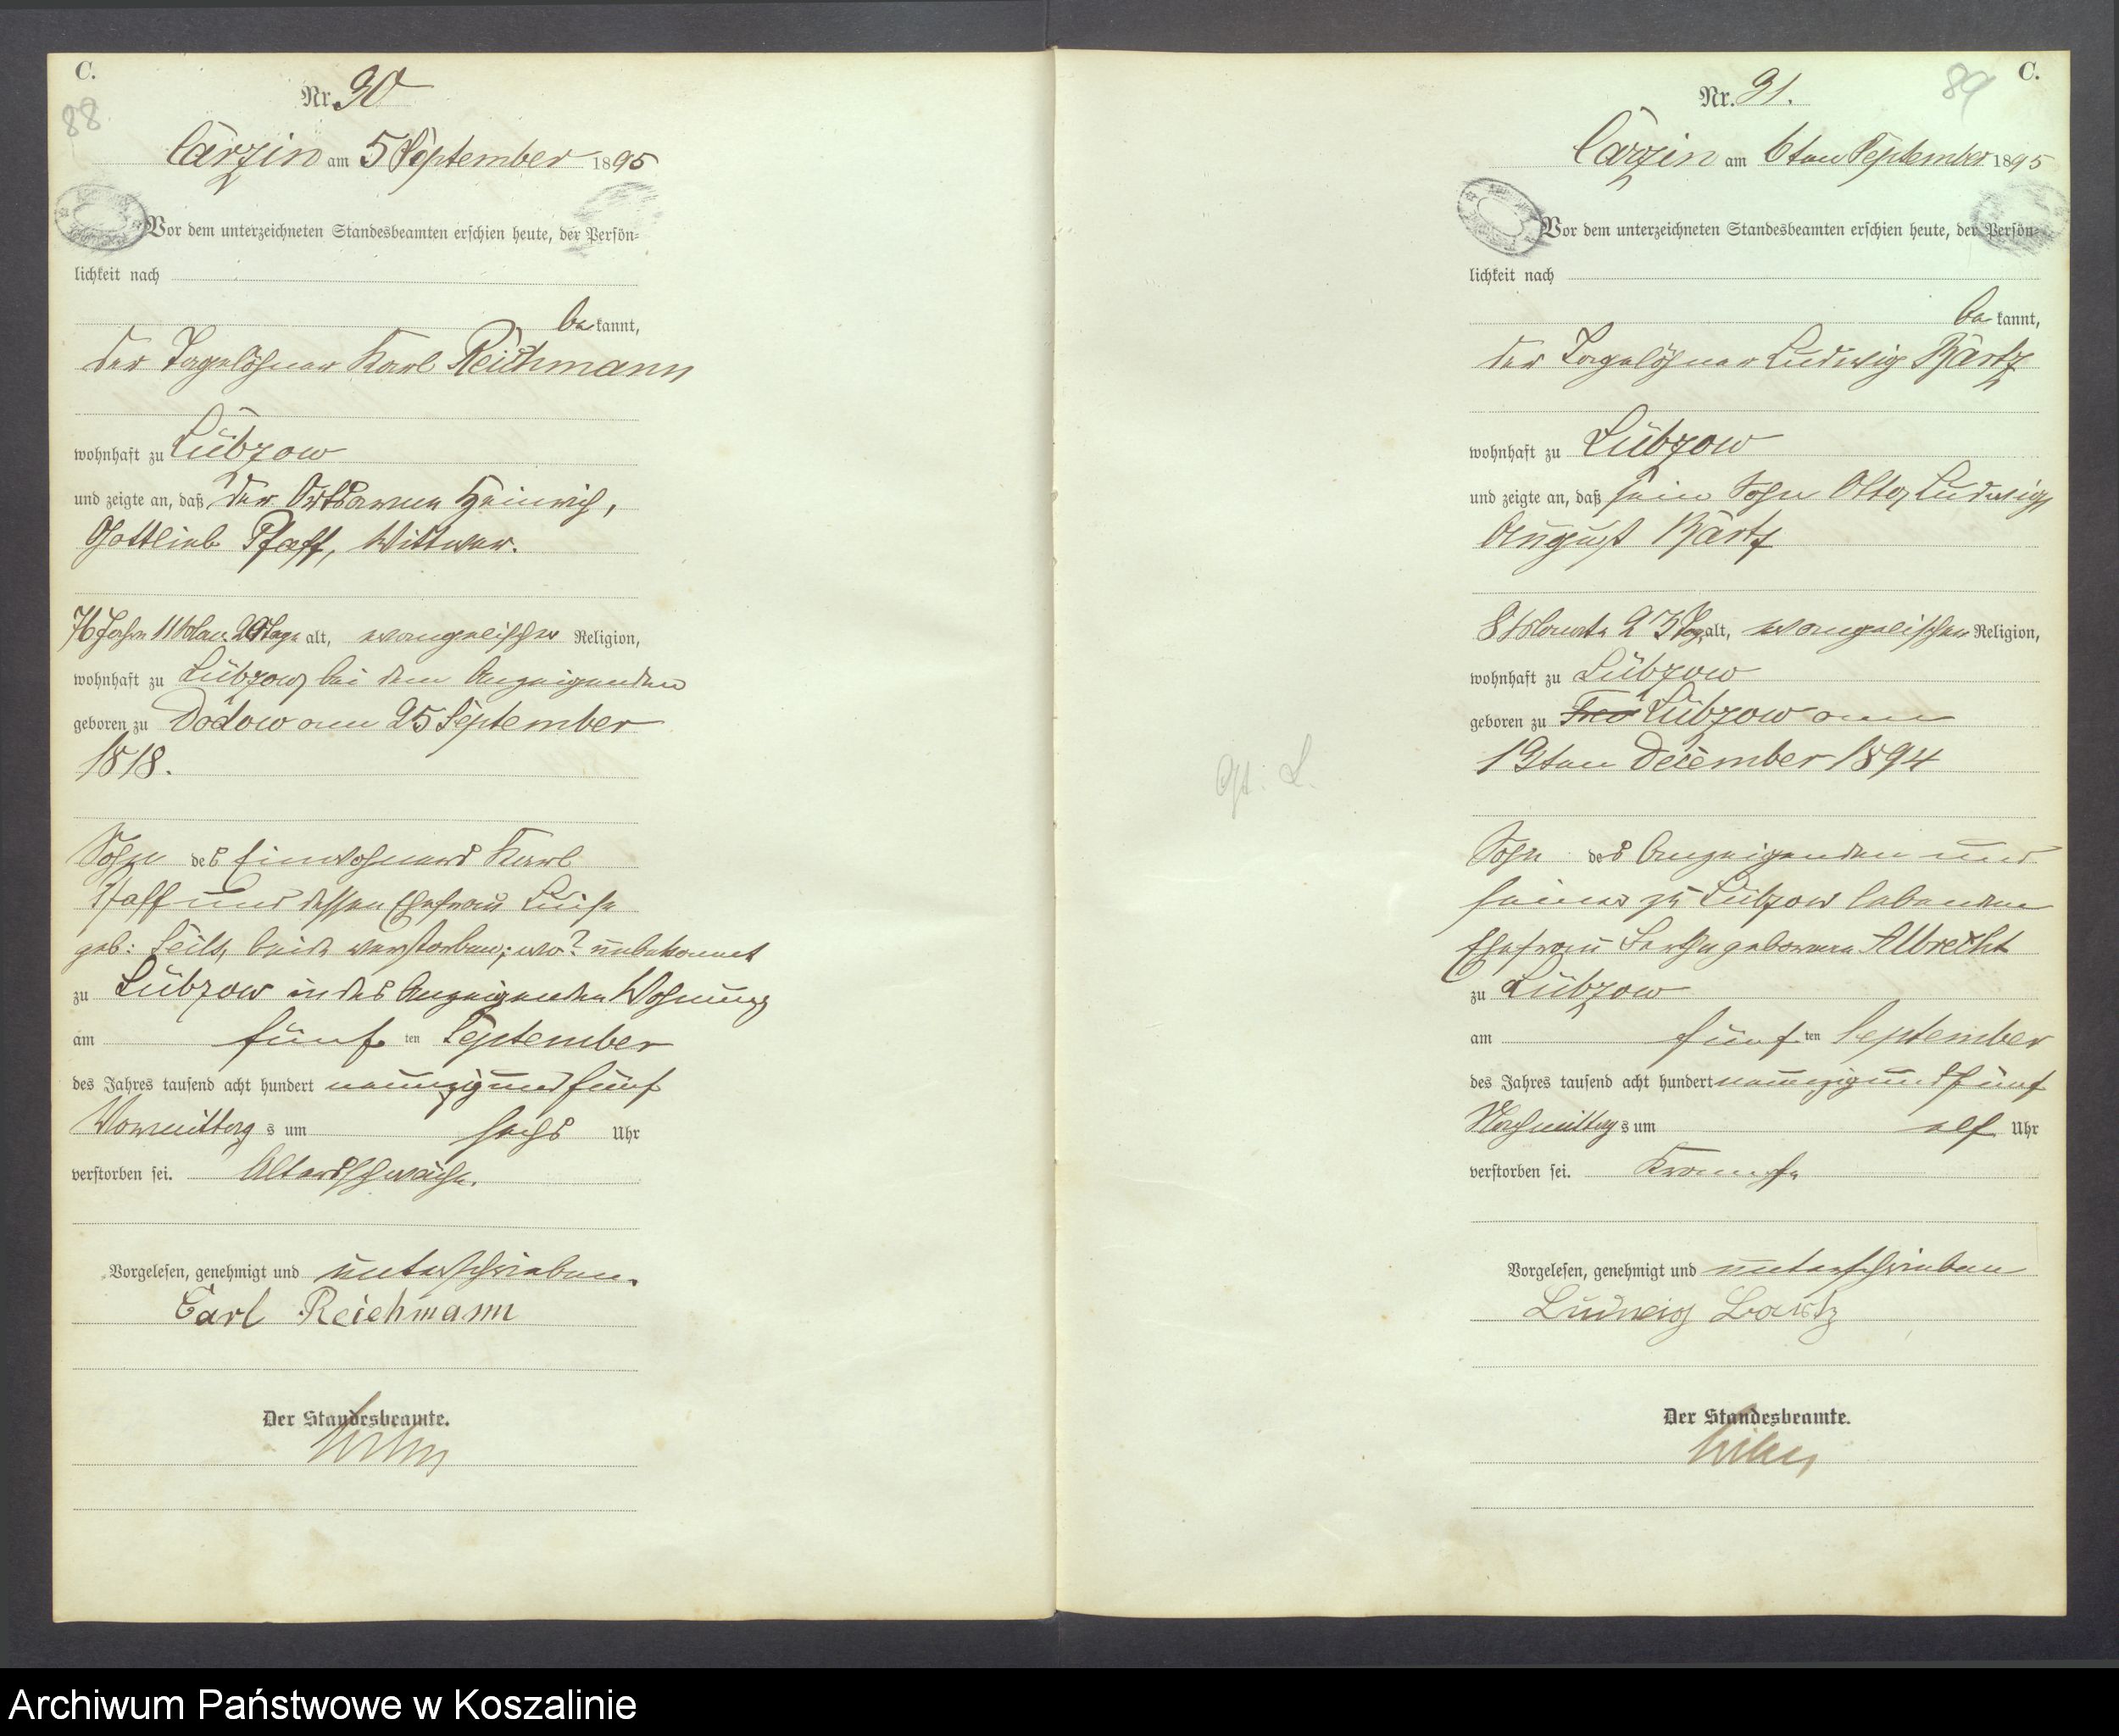 C.
88
Nr. 30
Carzin am 5 September 1895
Vor dem unterzeichneten Standesbeamten erschien heute, der Persön=
lichkeit nach
be kannt,
der Tagelöhner Karl Reichmann
wohnhaft zu Lübzow
und zeigte an, daß der Ortsarme Heinrich,
Gottlieb Pfaff, Wittwer.
76 Jahre 11 Mon. Tage alt, evangelischer Religion,
wohnhaft zu Lübzow, bei dem Anzeigenden
geboren zu Dodow am 25 September
1818.
Sohn des Einwohners Karl
Pfaff und dessen Ehefrau Luise
geb: beide verstorben; wo? unbekannt
zu Lübzow in des Anzeigenden Wohnung
am fünf ten September
des Jahres tausend acht hundert neunzig und fünf
Vormittag s um sechs Uhr
verstorben sei. Altersschwäche.
Vorgelesen, genehmigt und unterschrieben.
Carl Reichmann
Der Standesbeamte.
C.
89
Nr. 31.
Carzin am 6ten September 1895
Vor dem unterzeichneten Standesbeamten erschien heute, der Persön=
lichkeit nach
be kannt,
der Tagelöhner Ludwig Bartz
wohnhaft zu Lübzow
und zeigte an, daß sein Sohn Otto, Ludwig,
August Bartz
8 Monate 23 Tage alt, evangelischer Religion,
wohnhaft zu Lübzow
geboren zu Lübzow am
13ten December 1894
Sohn des Anzeigenden und
seiner zu Lübzow lebenden
Ehefrau Bertha geborene Albrecht
zu Lübzow
am fünf ten September
des Jahres tausend acht hundert neunzig und fünf
Nachmittag s um elf Uhr
verstorben sei. Krämpfe
Vorgelesen, genehmigt und unterschrieben
Ludwig Bartz
Der Standesbeamte.
Archiwum Państwowe w Koszalinie